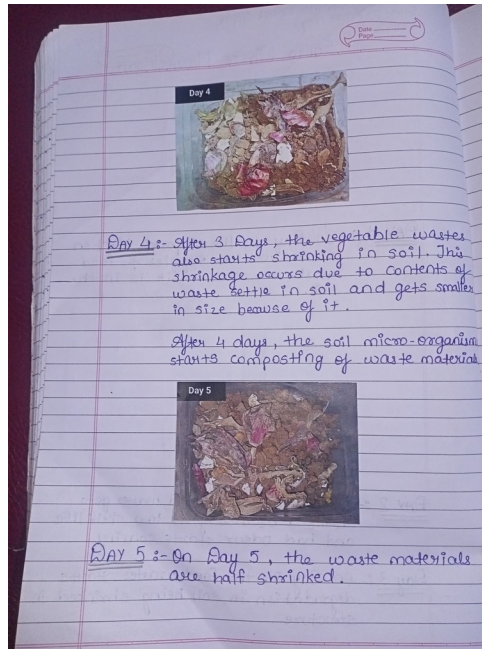 Date
Page
Day 4
DAY 4 :- After 3 Days, the vegetable wastes
also starts shrinking in soil. This
shrinkage occurs due to contents of
waste settle in soil and gets smaller
in size because of it.
After 4 days, the soil micro-organism
starts composting of waste material
Day 5
DAY 5 :- On Day 5, the waste materials
are half shrinked.